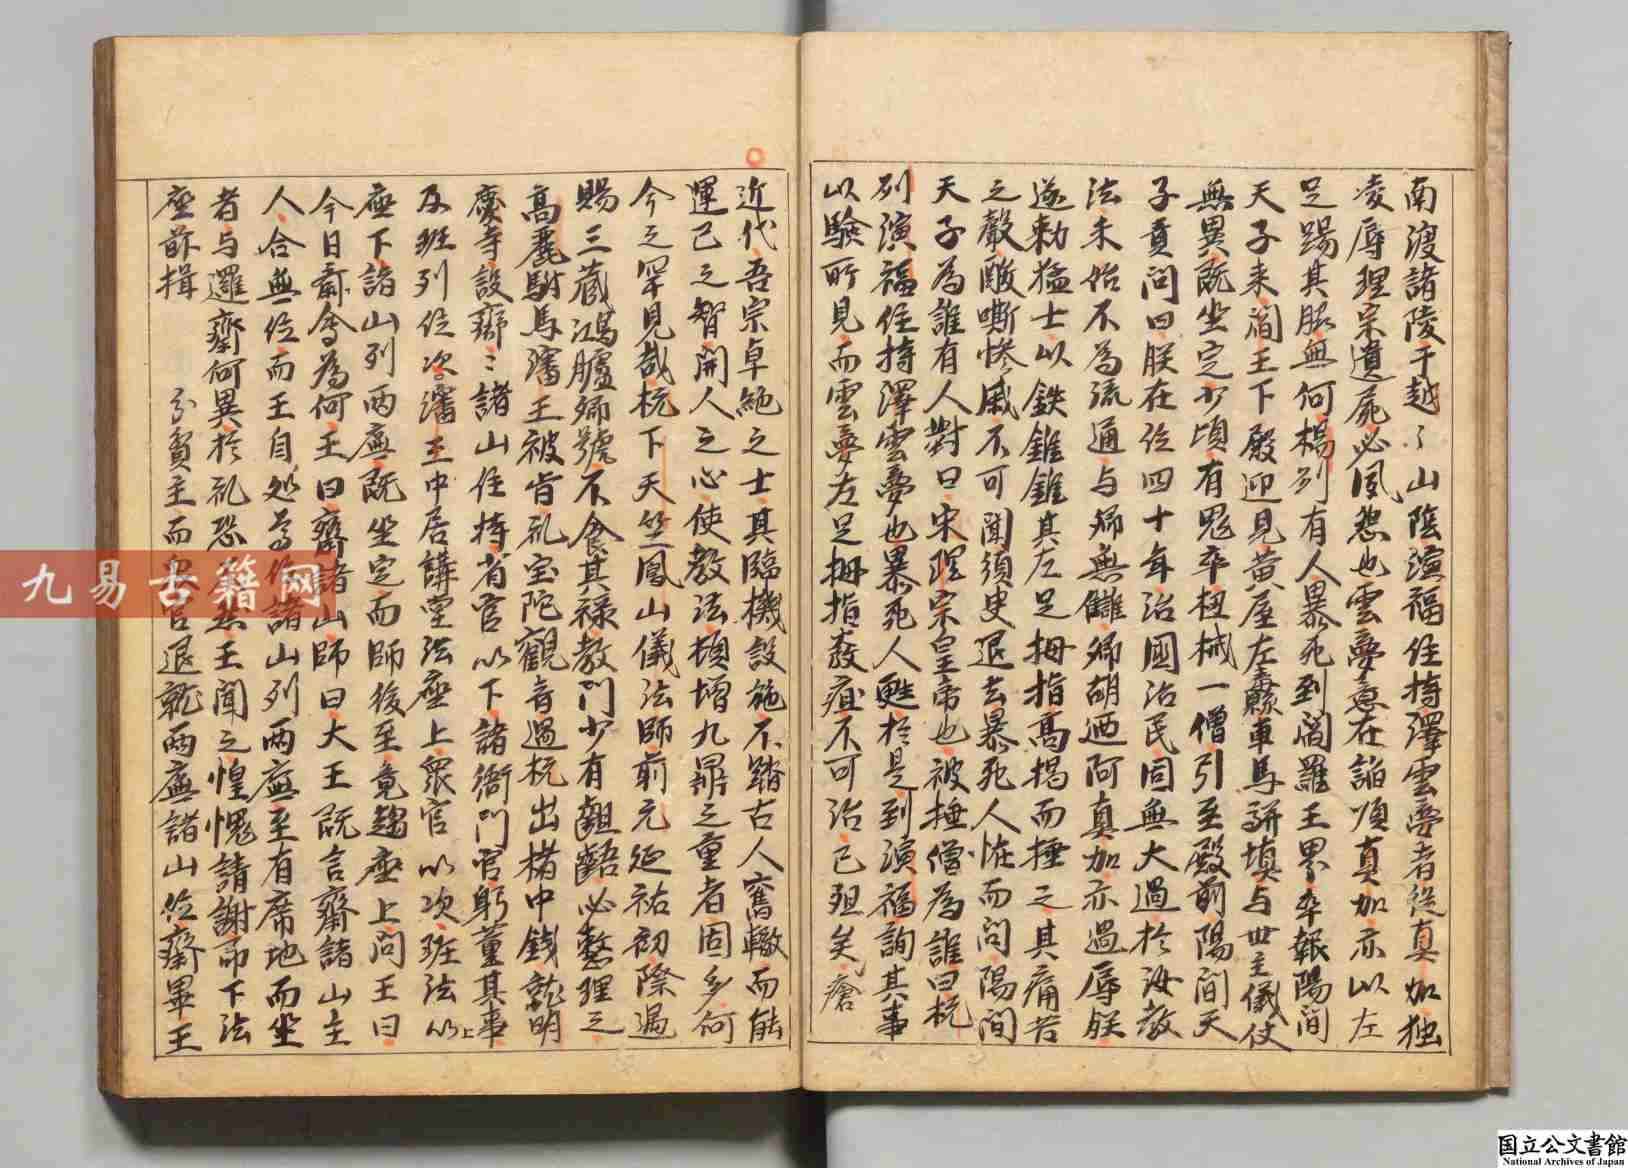 南渡諸陵于越〻山陰演福住持澤雲夢者從真加独
凌辱理宗遺屍必夙怨也雲夢意在諂順真加亦以左
足踢其脰無何楊列有人暴死到閻羅王界卒報陽間
天子来閻王下殿迎見黄屋左纛車馬駢填与世主儀仗
無異既坐定少頃有鬼卒杻械一僧引至殿前陽間天
子責問曰朕在位四十年治國治民固無大過於汝教
法未始不為流通与卿無讎卿胡迺阿真加亦過辱朕
遂敕猛士以鉄錐錐其左足拇指高揭而捶之其痛苦
之聲酸嘶惨戚不可聞須臾退去暴死人恠而問陽間
天子為誰有人對曰宋理宗皇帝也被捶僧為誰曰杭
列演福住持澤雲夢也暴死人甦於是到演福詢其事
以驗所見而雲夢左足拇指發疽不可治已殂矣瘡
近代吾宗卓絶之士其臨機設施不踏古人舊轍而能
運己之智開人之心使教法頓増九鼎之重者固多何
今之罕見哉杭下天竺鳳山儀法師前元延祐初際遇
賜三藏鴻臚卿號不食其禄教門少有齟齬必整理之
高麗駙馬瀋王被旨礼宝陀觀音過杭出楮中錢就明
慶寺設齋〻諸山住持省官以下諸衙門官躬董其事
及班列位次瀋王中居講堂法座上衆官以次班法以上
座下諸山列兩廡既坐定而師後至竟趨座上問王曰
今日齋會為何王曰齋諸山師曰大王既言齋諸山主
人合無位而王自処尊位諸山列兩廡至有席地而坐
者与邏齋何異於礼恐不然王聞之惶愧請謝而下法
座師揖 分賓主而衆官退就兩廡諸山位齋畢王
九易古籍网
国立公文書館
National Archives of Japan